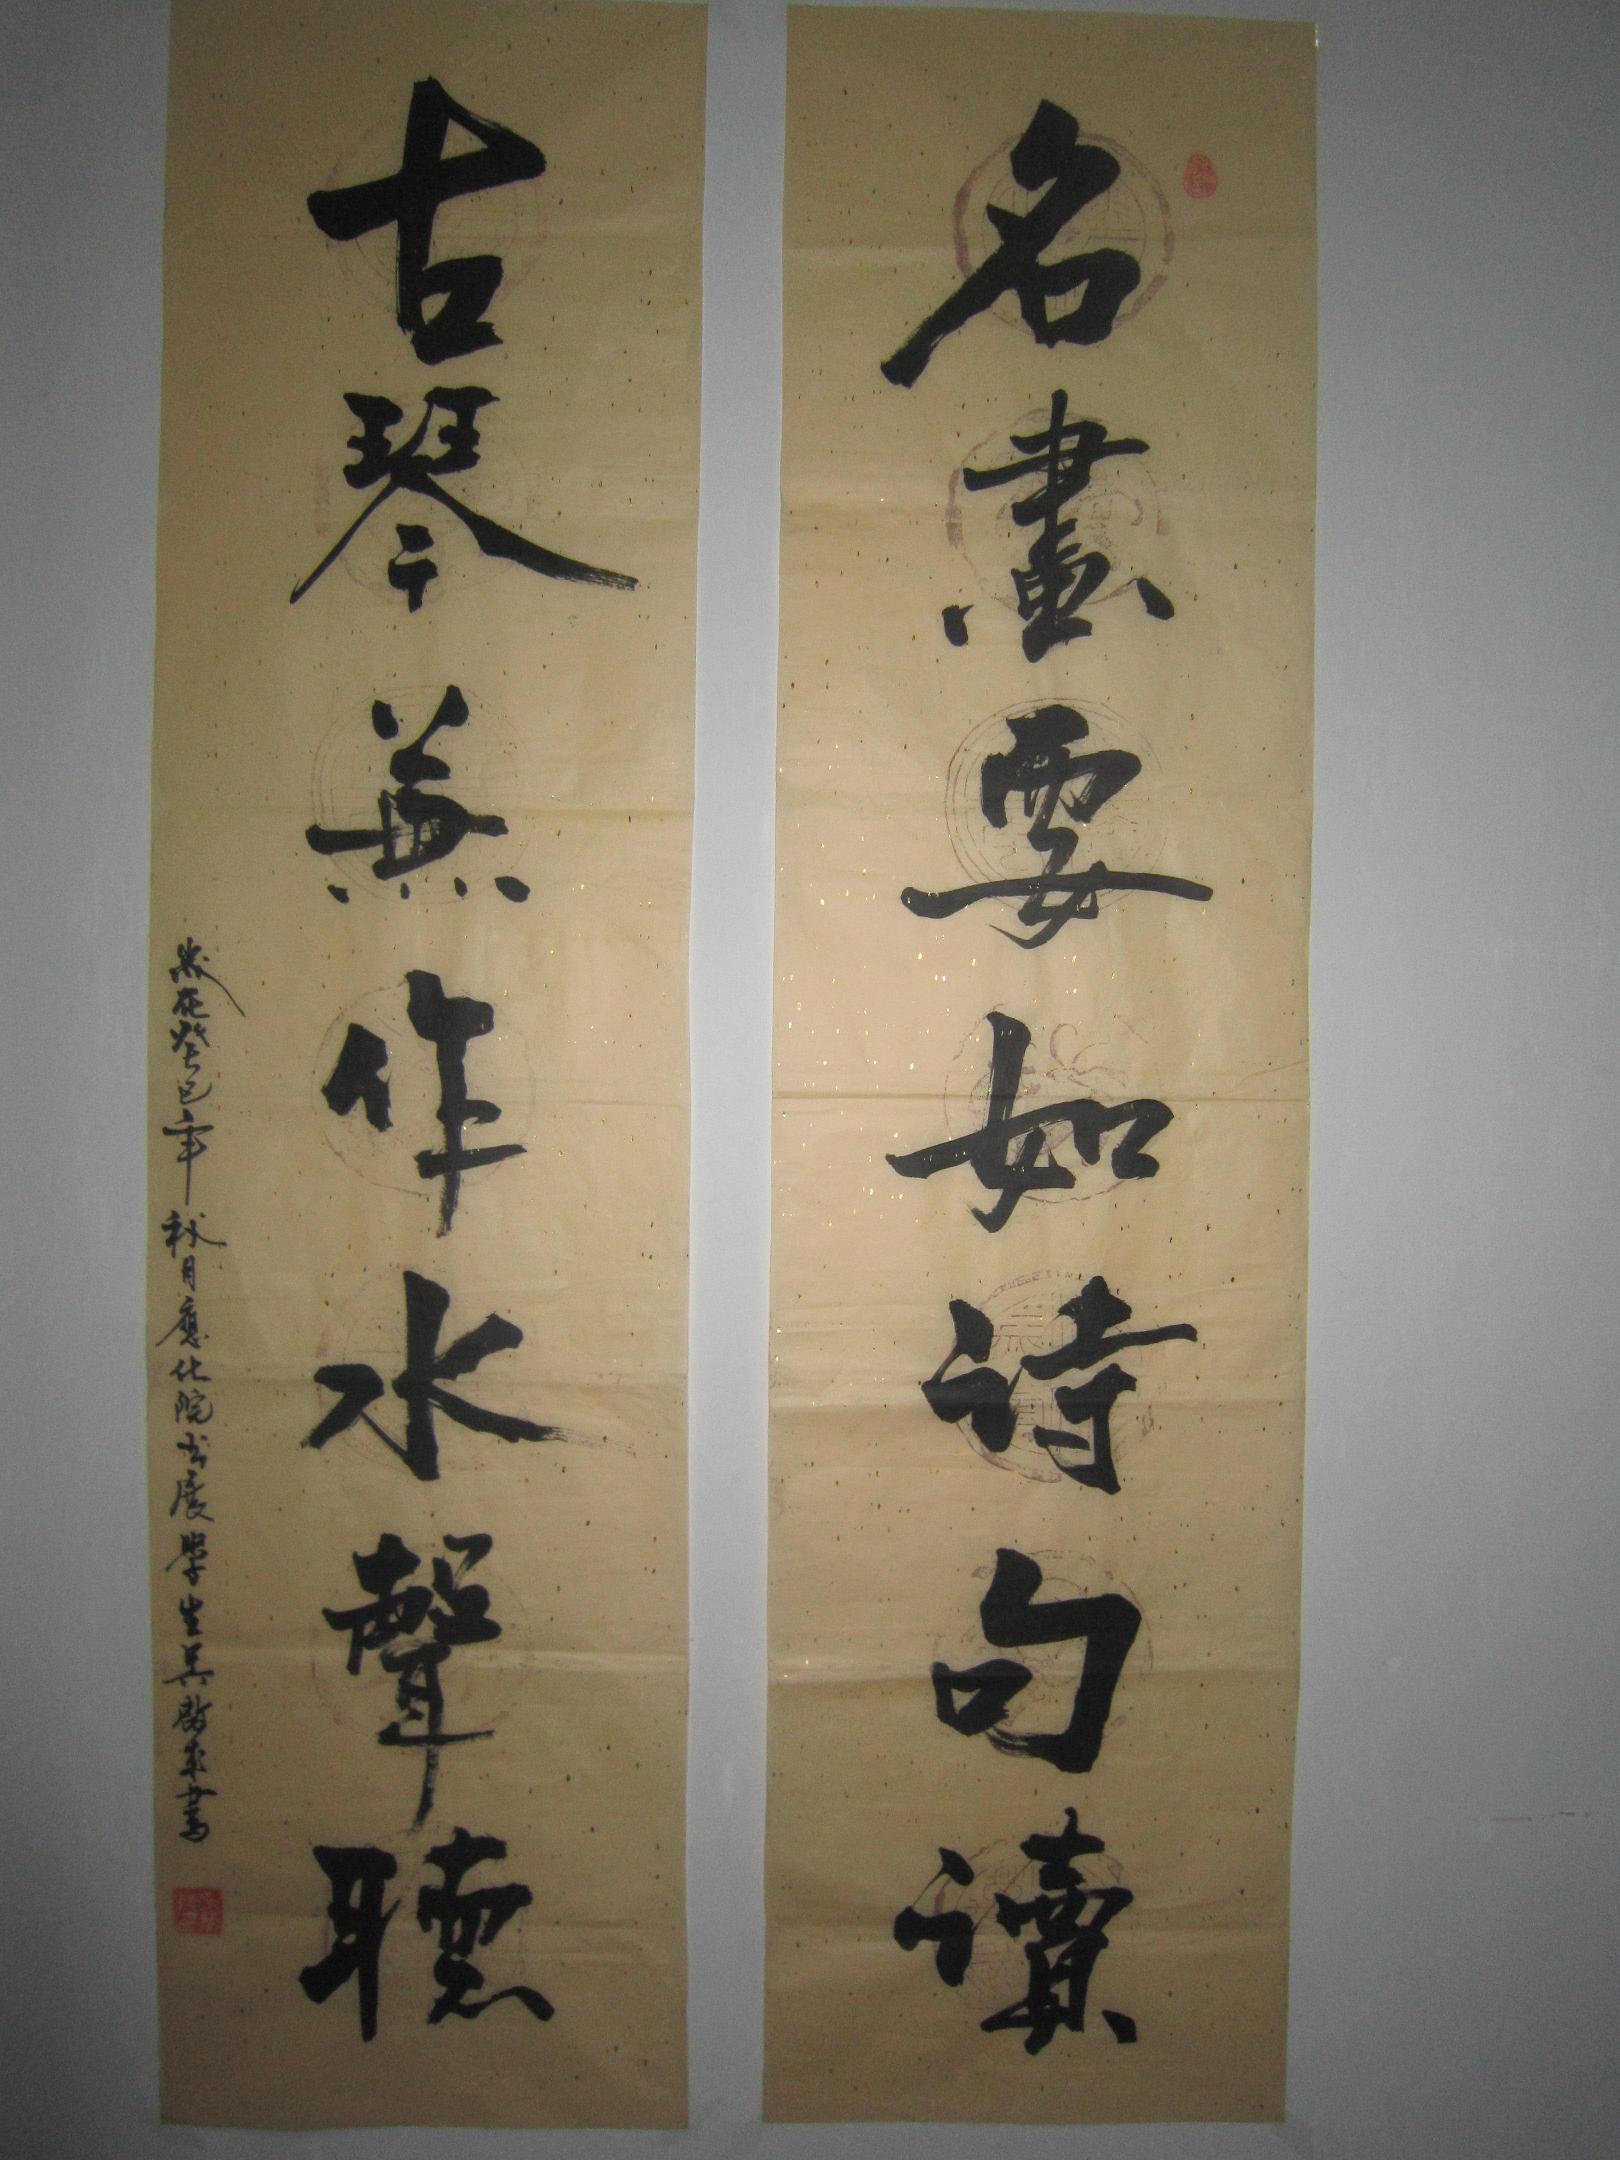 名畫要如詩句讀
古琴兼作水聲聽
歲在癸巳年秋月應化院书展學生吴啟書